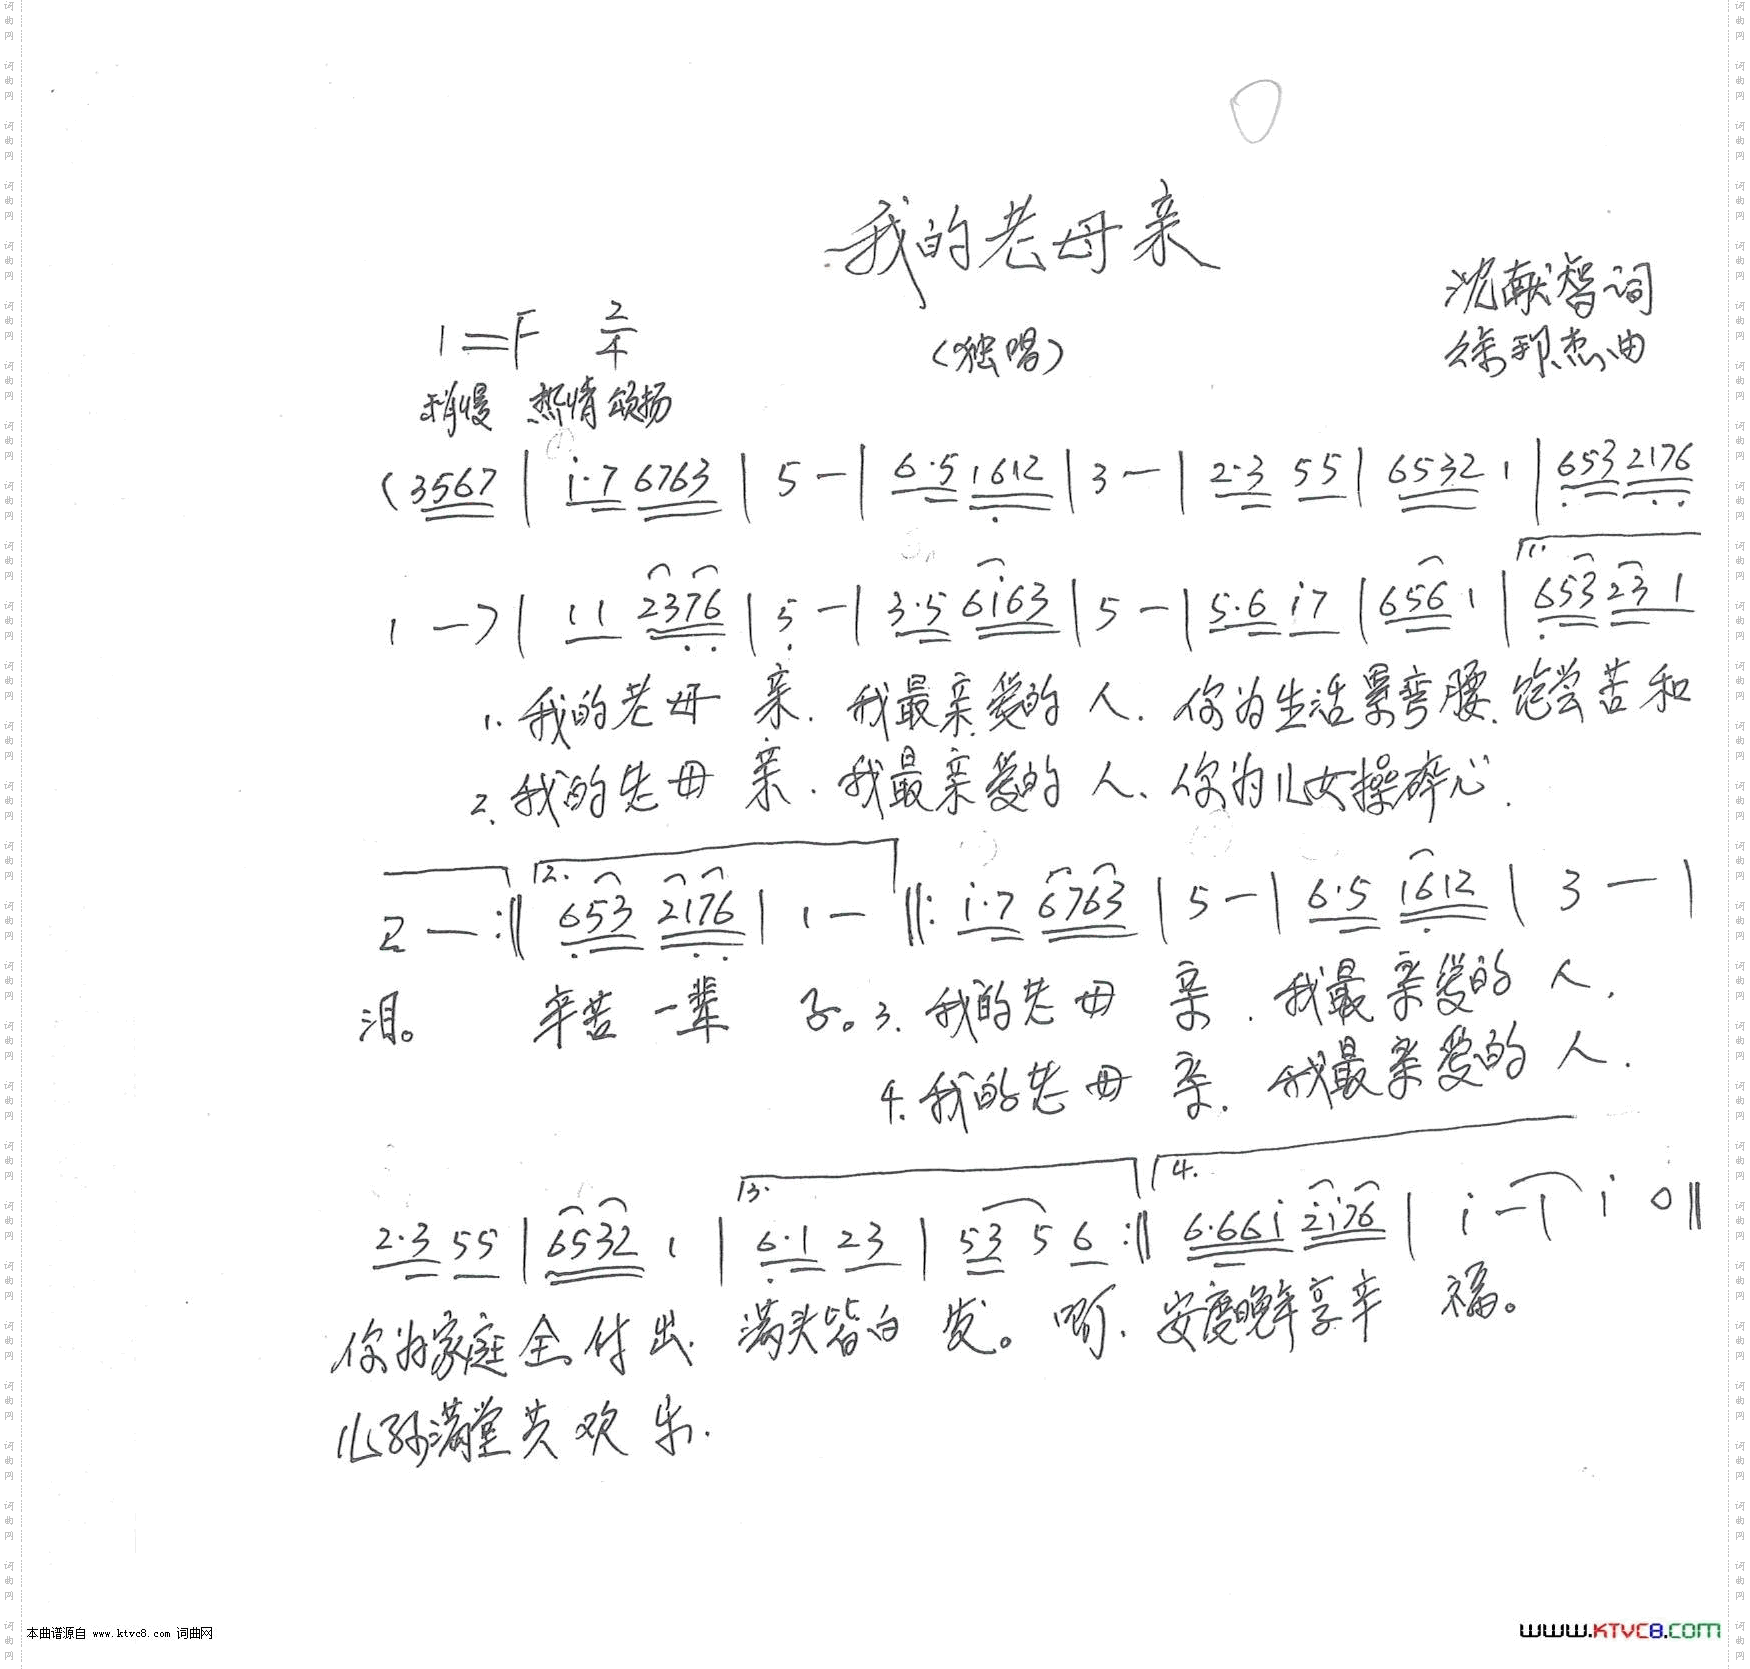 我的老母亲
1=F 2/4
(独唱)
沈献智词
徐邦杰曲
稍慢 热情颂扬
(3567 | i·7 6763 | 5 — | 6·5 1612 | 3 — | 2·3 55 | 6532 1 | 653 2176
1 —) | 11 2376 | 5 — | 3·5 6i63 | 5 — | 5·6 i7 | 656 1 | 1. 653 23 1
1. 我的老母亲. 我最亲爱的人. 你为生活累弯腰. 饱尝苦和
2. 我的老母亲. 我最亲爱的人. 你为儿女操碎心.
2 — :‖ 2. 653 2176 | 1 — ‖: i·7 6763 | 5 — | 6·5 1612 | 3 — |
泪。 辛苦一辈子。3. 我的老母亲. 我最亲爱的人.
4. 我的老母亲. 我最亲爱的人.
2·3 55 | 6532 1 | 3. 6·1 23 | 53 5 6 :‖ 4. 6·66i 2i76 | i — | i 0 ‖
你为家庭全付出. 满头皆白发。啊. 安度晚年享幸福。
儿孙满堂共欢乐.
本曲谱源自 www.ktvc8.com 词曲网
www.KTVC8.com